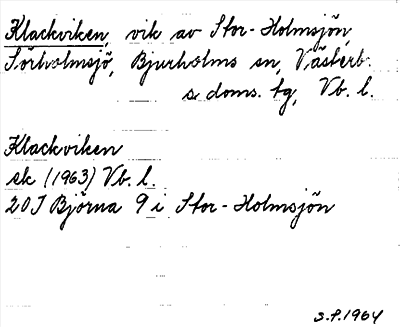 Klackviken, vik av Stor-Holmsjön,
Sörholmsjö, Bjurholms sn, Västerb.
s. doms. tg, Vb. l.
Klackviken
ek (1963) Vb. l.
20J Björna 9 i Stor-Holmsjön
S.P. 1964